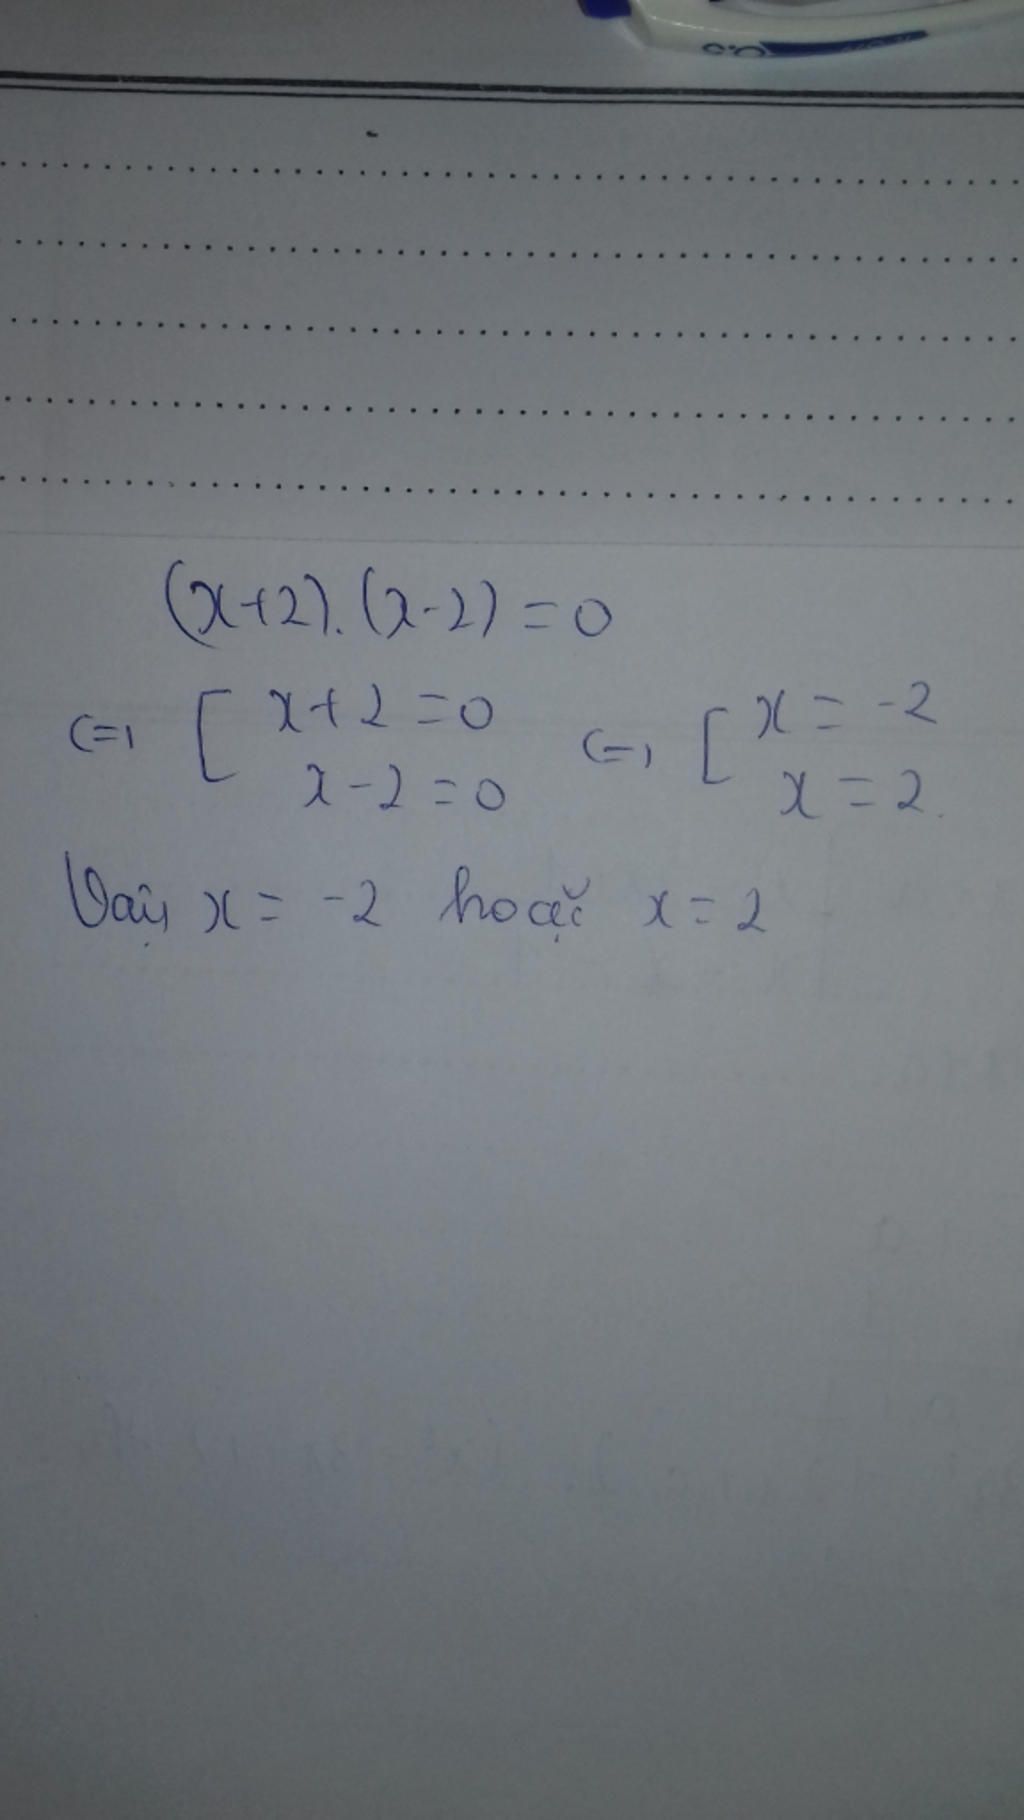 (x+2).(x-2) = 0
<=> [ x+2 = 0 <=> [ x = -2
x-2 = 0 x = 2.
Vậy x = -2 hoặc x = 2